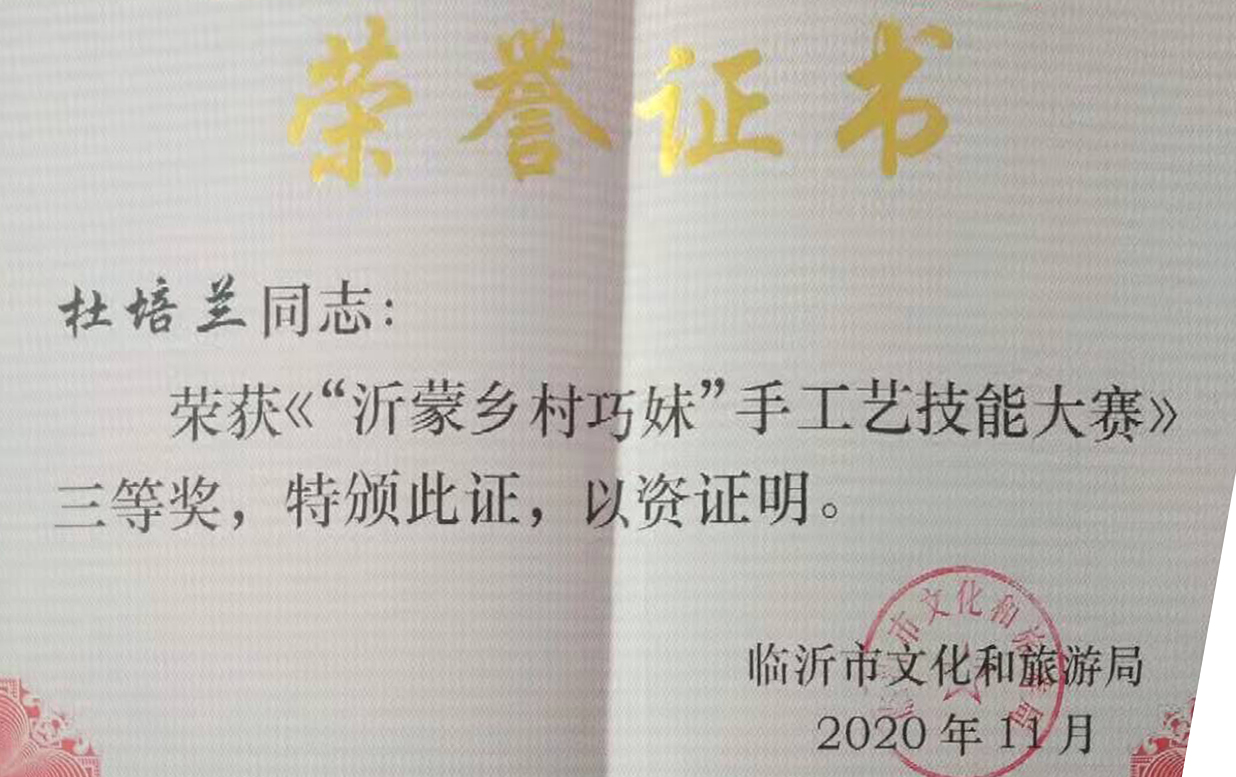 荣誉证书
杜培兰同志：
荣获《“沂蒙乡村巧妹”手工艺技能大赛》
三等奖，特颁此证，以资证明。
市文化和旅
局
临沂市文化和旅游局
2020年11月